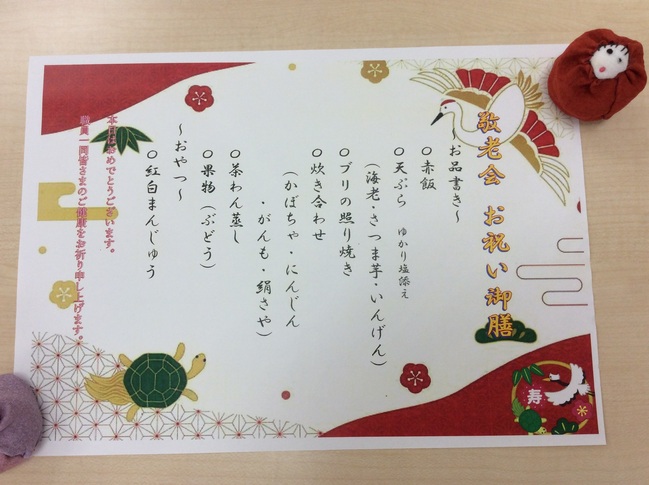 敬老会 お祝い御膳
～お品書き～
○赤飯
○天ぷら ゆかり塩添え
(海老・さつま芋・いんげん)
○ブリの照り焼き
○炊き合わせ
(かぼちゃ・にんじん
・がんも・絹さや)
○茶わん蒸し
○果物(ぶどう)
～おやつ～
○紅白まんじゅう
本日はおめでとうございます。
職員一同皆さまのご健康をお祈り申し上げます。
寿